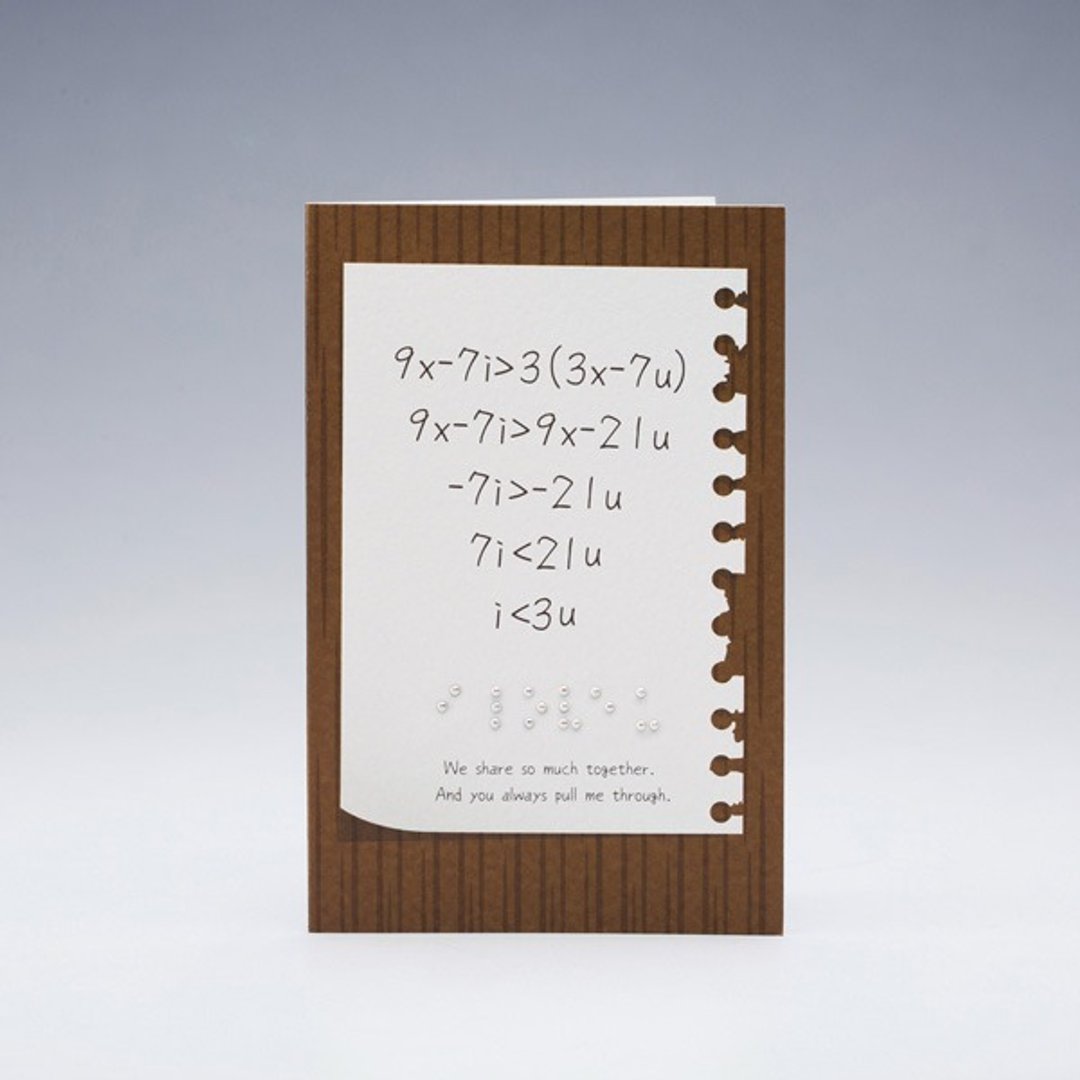 9x-7i>3(3x-7u)
9x-7i>9x-21u
-7i>-21u
7i<21u
i<3u
⠊ ⠇⠕⠧⠑ ⠥
We share so much together.
And you always pull me through.